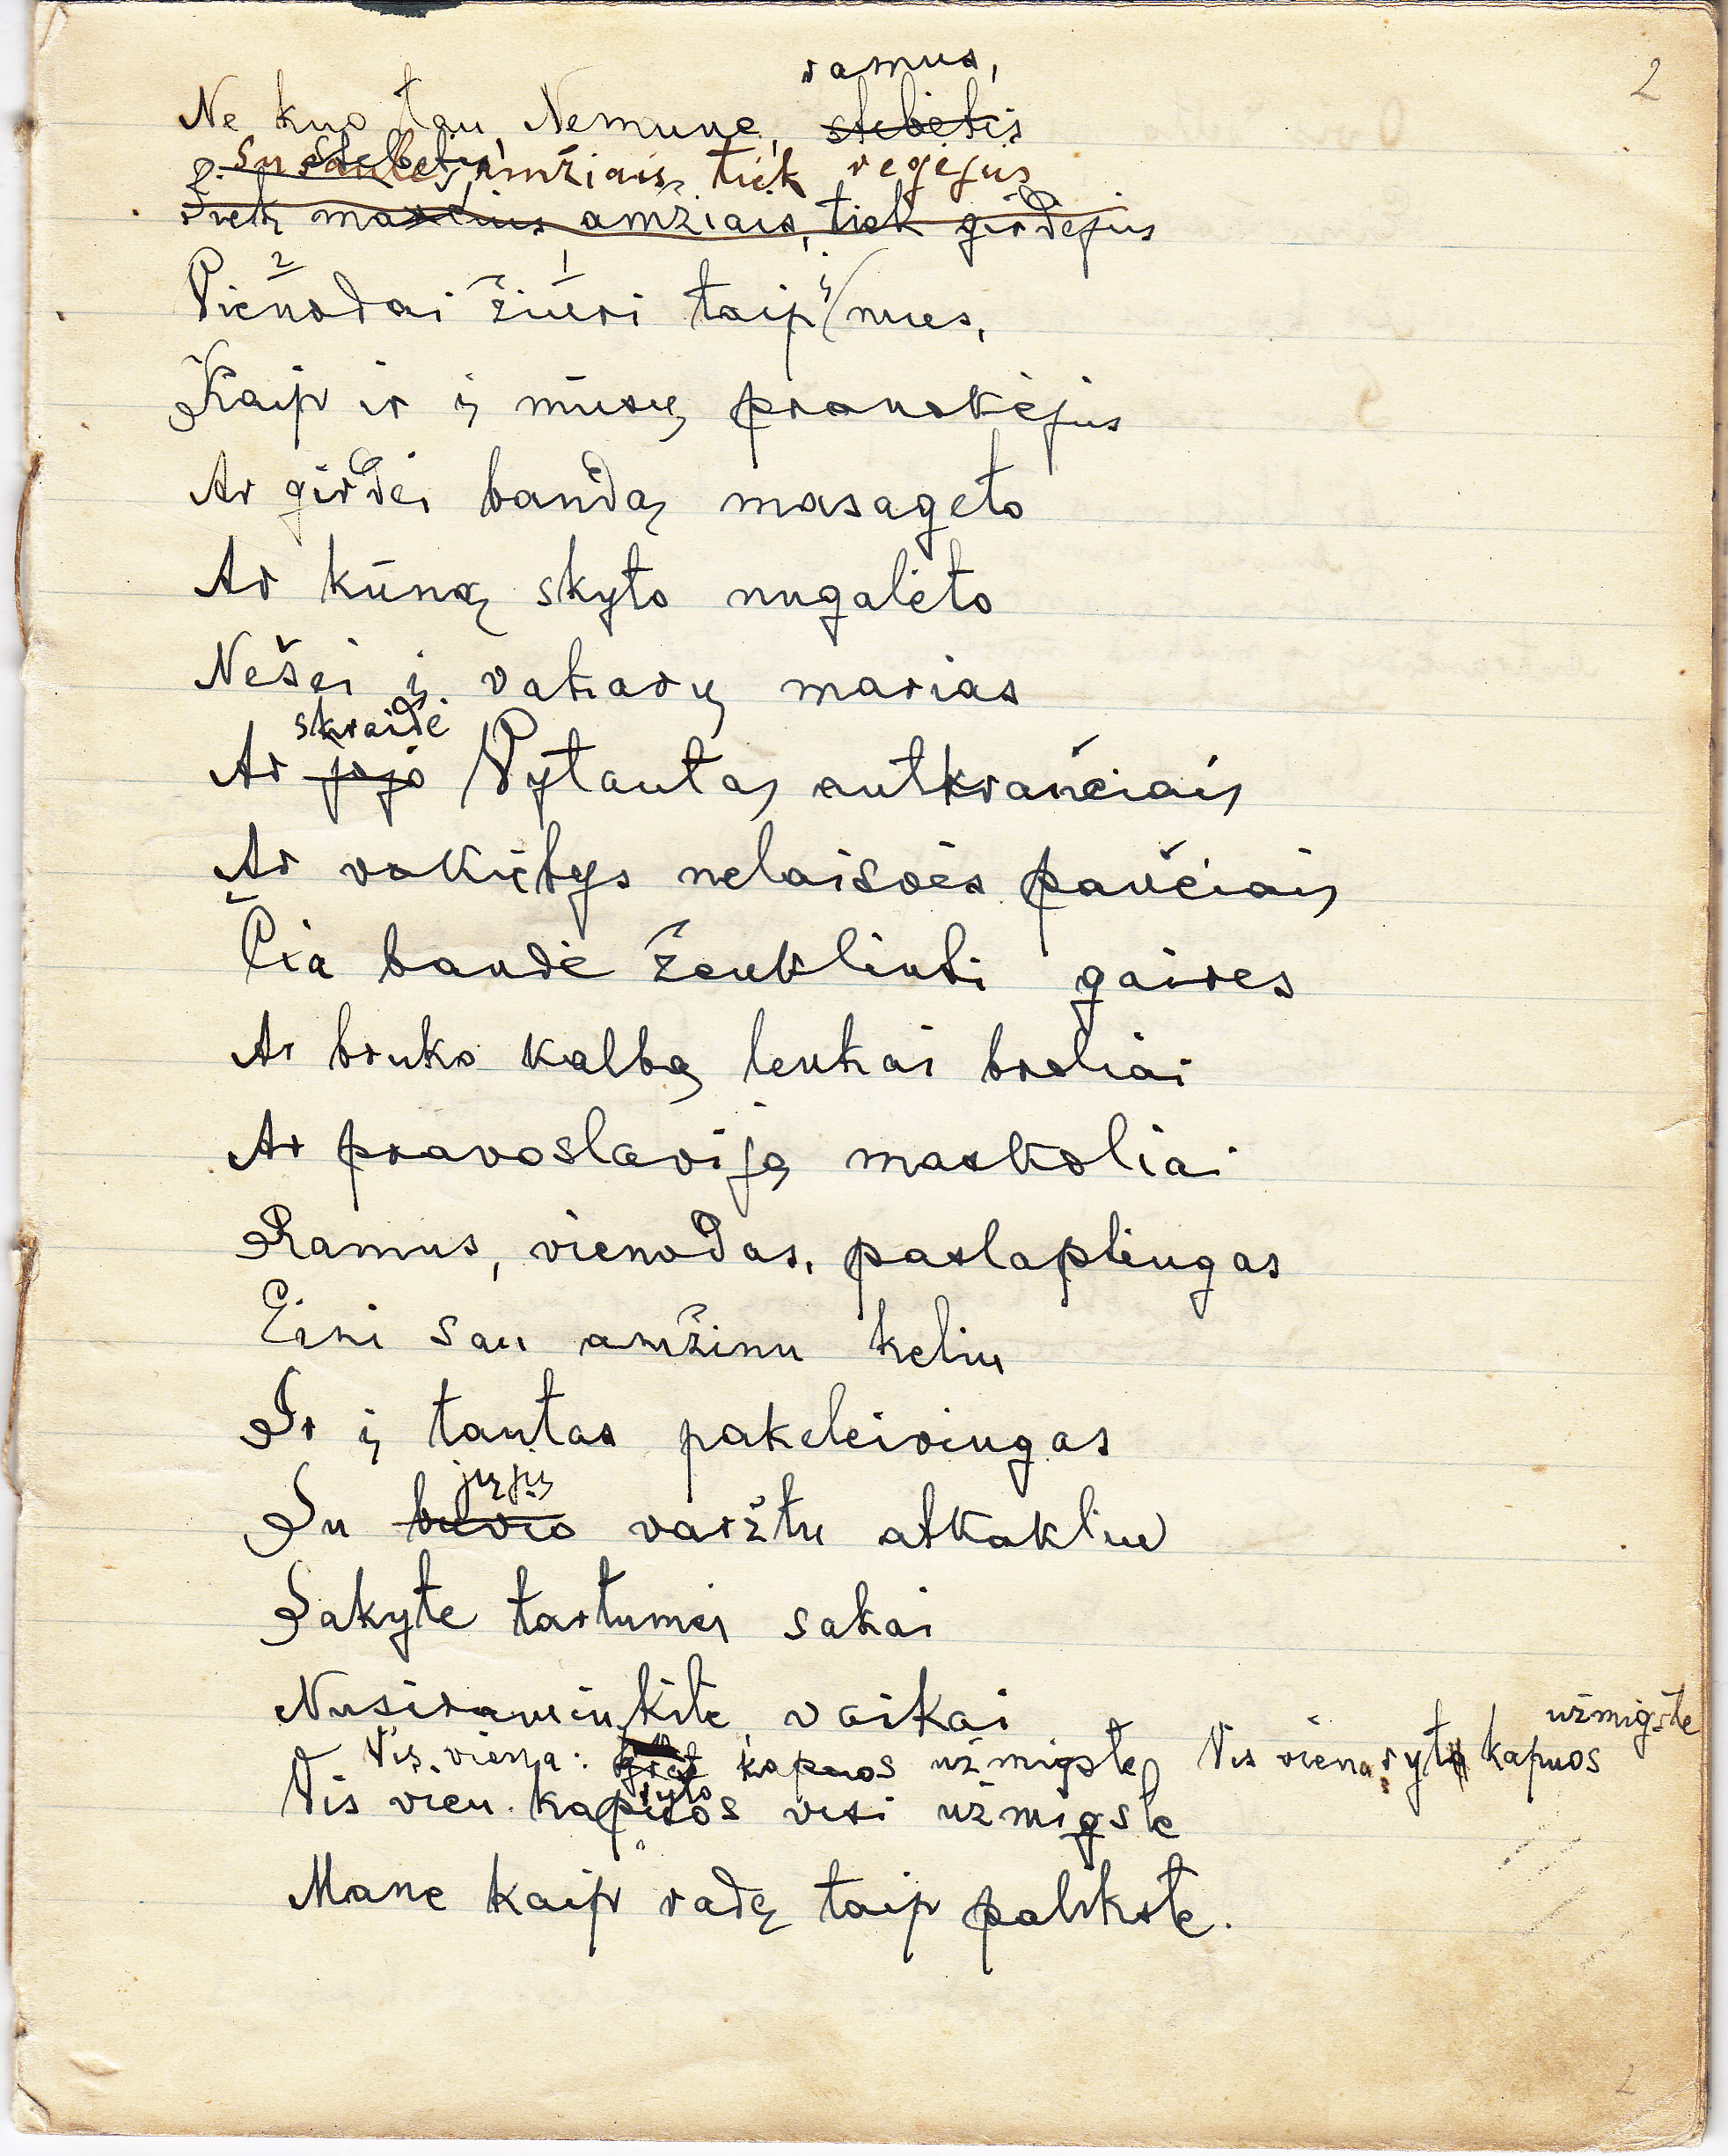 2
ramus,
Ne kuo tau, Nemune, stebėtis
Su saulės amžiais tiek regėjus
amžiais, tiek girdėjus
2 1
Vienodai žiūri taip į mus,
Kaip ir į mūsų pranokėjus
Ar girdei bandą masageto
Ar kūną skyto nugalėto
Nešei į vakarų marias
skraidė
Ar jojo Vytautas antkrančiais
Ar vokietys nelaisvės pančiais
Čia bandė ženklinti gaires
Ar bruko kalbą lenkai broliai
Ar pravoslaviją maskoliai
Ramus, vienodas, paslaptingas
Eini sau amžinu keliu
Ir į tautas pakeleivingas
jųjų
Su buvio varžtu atkakliu
Sakyte tartumei sakai
Nusiraminkite vaikai
užmigste
Vis viena: kapuos užmigste Vis viena ryto kapuos
ryto
Vis vien kapuos visi užmigste
Mane kaip radę taip paliksite.
2